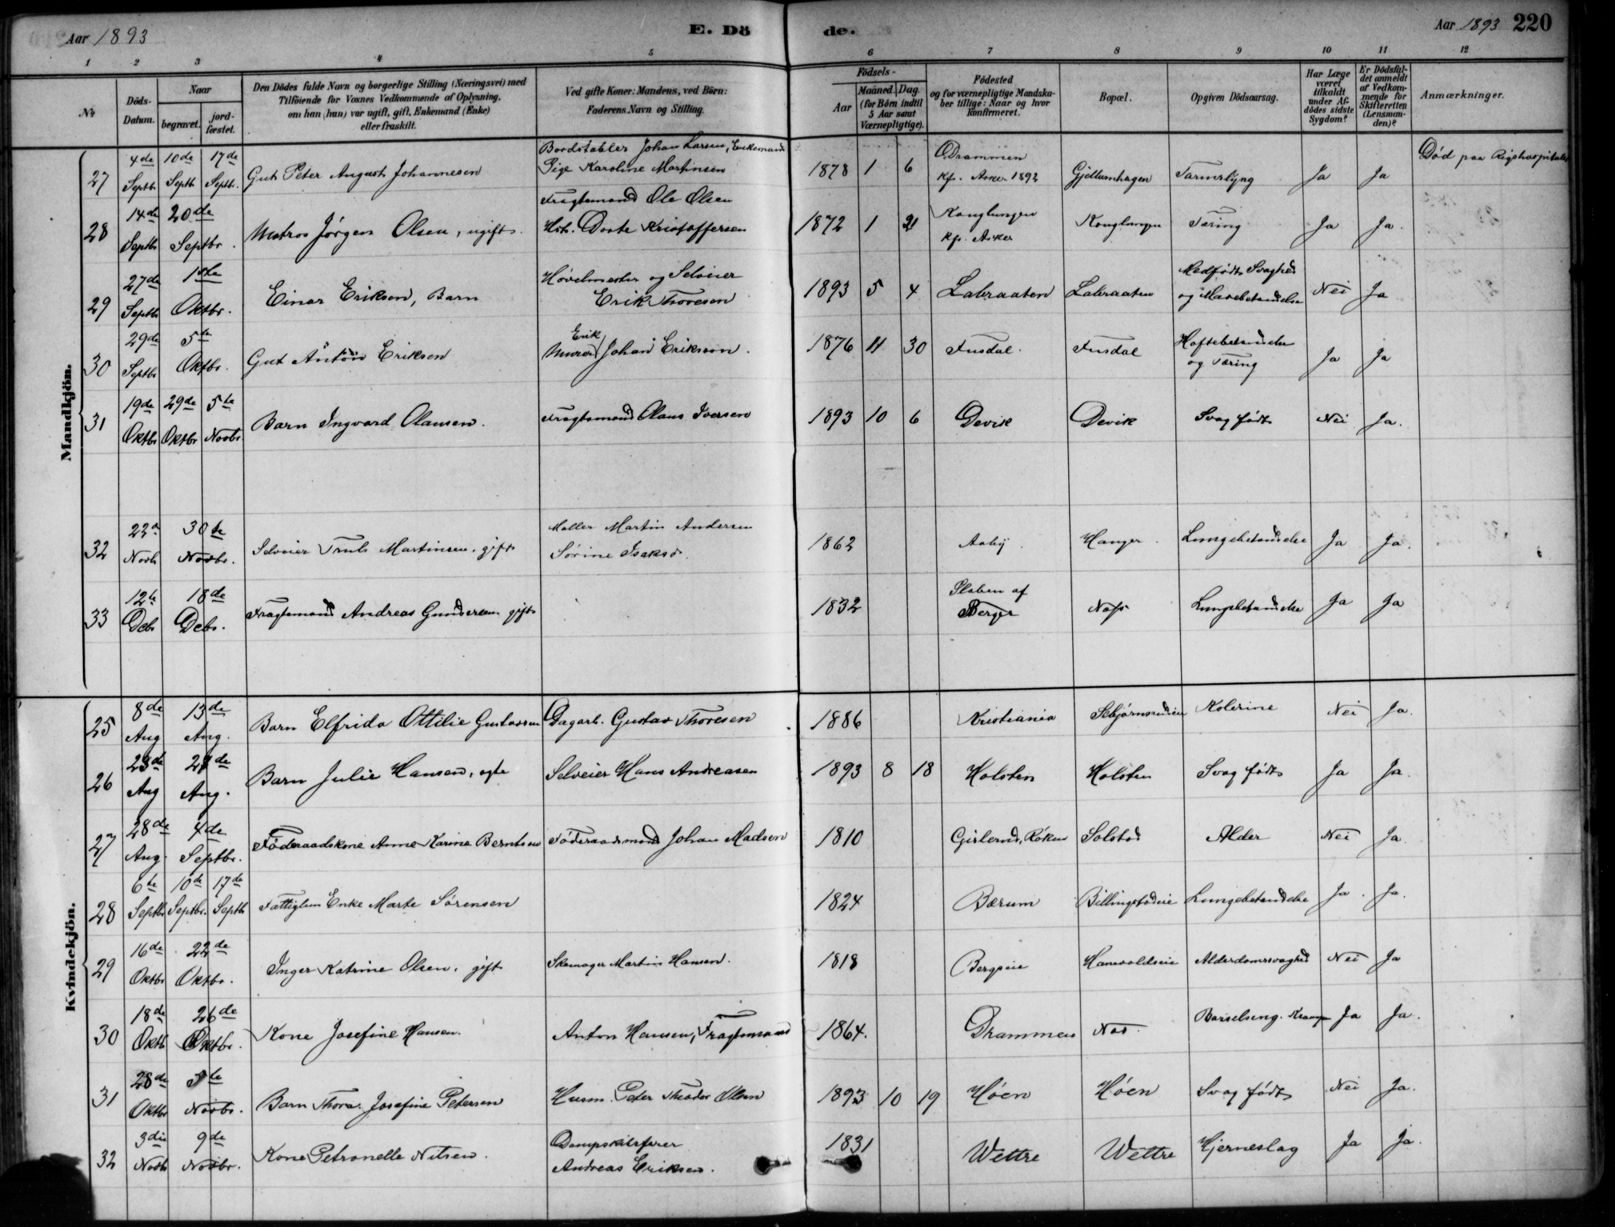 Aar 1893
E. Dö
de.
Aar 1893 220
1 2 3 4 5 6 7 8 9 10 11 12
No
Döds-Datum.
Naar
begravet.
jord-fæstet.
Den Dödes fulde Navn og borgerlige Stilling (Næringsvei) med
Tilföiende for Voxnes Vedkommende af Oplysning,
om han (hun) var ugift, gift, Enkemand (Enke)
eller fraskilt.
Ved gifte Koner: Mandens, ved Börn:
Faderens Navn og Stilling.
Födsels-
Aar
Maaned. Dag.
(for Börn indtil
5 Aar samt
Værnepligtige).
Födested
og for værnepligtige Mandska-
ber tillige: Naar og hvor
konfirmeret.
Bopæl.
Opgiven Dödsaarsag.
Har Læge
været
tilkaldt
under Af-
dödes sidste
Sygdom?
Er Dödsfal-
det anmeldt
af Vedkom-
mende for
Skifteretten
(Lensman-
den)?
Anmærkninger.
Mandkjön.
27 4de Septb 10de Septb 17de Septb. Gut Peter August Johannesen Bordstabler Johan Larsen, Enkemand Pige Karoline Martinsen 1878 1 6 Drammen Kf. Asker 1892 Gjellumhagen Ja Ja Død paa Rigshospitalet
28 14de Septb 20de Septbr. Matros Jørgen Olsen, ugift. Fragtemand Ole Olsen Dorte Kristoffersen 1872 1 21 Konglungen Kf. Asker Konglungen Tæring Ja Ja.
29 27de Septb 1ste Oktbr. Einar Eriksen, Barn Høvelmester og Selveier Erik Thoresen 1893 5 4 Labraaten Labraaten Medfødt Svaghed og Mavebetændelse Nei Ja
30 29de Septbr 5te Oktbr. Gut Anton Eriksen Murer Erik Johan Eriksson. 1876 11 30 Fusdal. Fusdal Hoftebetændelse og Tæring Ja Ja
31 19de Oktbr 29de Oktbr 5te Novbr Barn Ingvard Olausen. Fragtemand Olaus Iversen 1893 10 6 Devik Devik Svag født Nei Ja.
32 22de Novb 30te Novbr. Selveier Truls Martinsen, gift Møller Martin Andersen Sørine Isaksd. 1862 Aaby. Hanger. Lungebetændelse Ja Ja.
33 12te Debr 18de Debr. Fragtemand Andreas Gundersen gift 1832 Pladsen af Berger Næss Lungebetændelse Ja Ja
Kvindekjön.
25 8de Aug 13de Aug. Barn Elfrida Ottilie Gustavsen Dagarb. Gustav Thoresen 1886 Kristiania Kolerine Nei Ja.
26 23de Aug 27de Aug. Barn Julie Hansen, egte Selveier Hans Andreasen 1893 8 18 Holsten Holsten Svag født Ja Ja
27 28de Aug. 4de Septbr. Føderaadskone Anne Karine Berntsen Føderaadsmand Johan Madsen 1810 Gislerud, Røken Solstad Alder Nei Ja
28 6te Septb 10de Septbr. 17de Septb Fattiglem Enke Marte Sørensen 1824 Bærum Billingstadeie Lungebetændelse Ja. Ja.
29 16de Oktbr 22de Oktbr. Inger Katrine Olsen, gift Skomager Martin Hansen. 1818 Bergseie Hanevoldseie Alderdomssvaghed Nei Ja
30 18de Oktb 26de Oktbr. Kone Josefine Hansen. Anton Hansen, Fragtemand 1864. Drammen Nes Barselseng. Krampe Ja Ja.
31 28de Oktbr 5te Novbr. Barn Thora Josefine Petersen Husm. Peter Theodor Olsen 1893 10 19 Høen Høen Svag født Nei Ja.
32 3die Novb 9de Novbr. Kone Petronelle Nilsen. Dampskibsfører Andreas Eriksen. 1831 Wettre Wettre Hjerneslag Ja Ja.